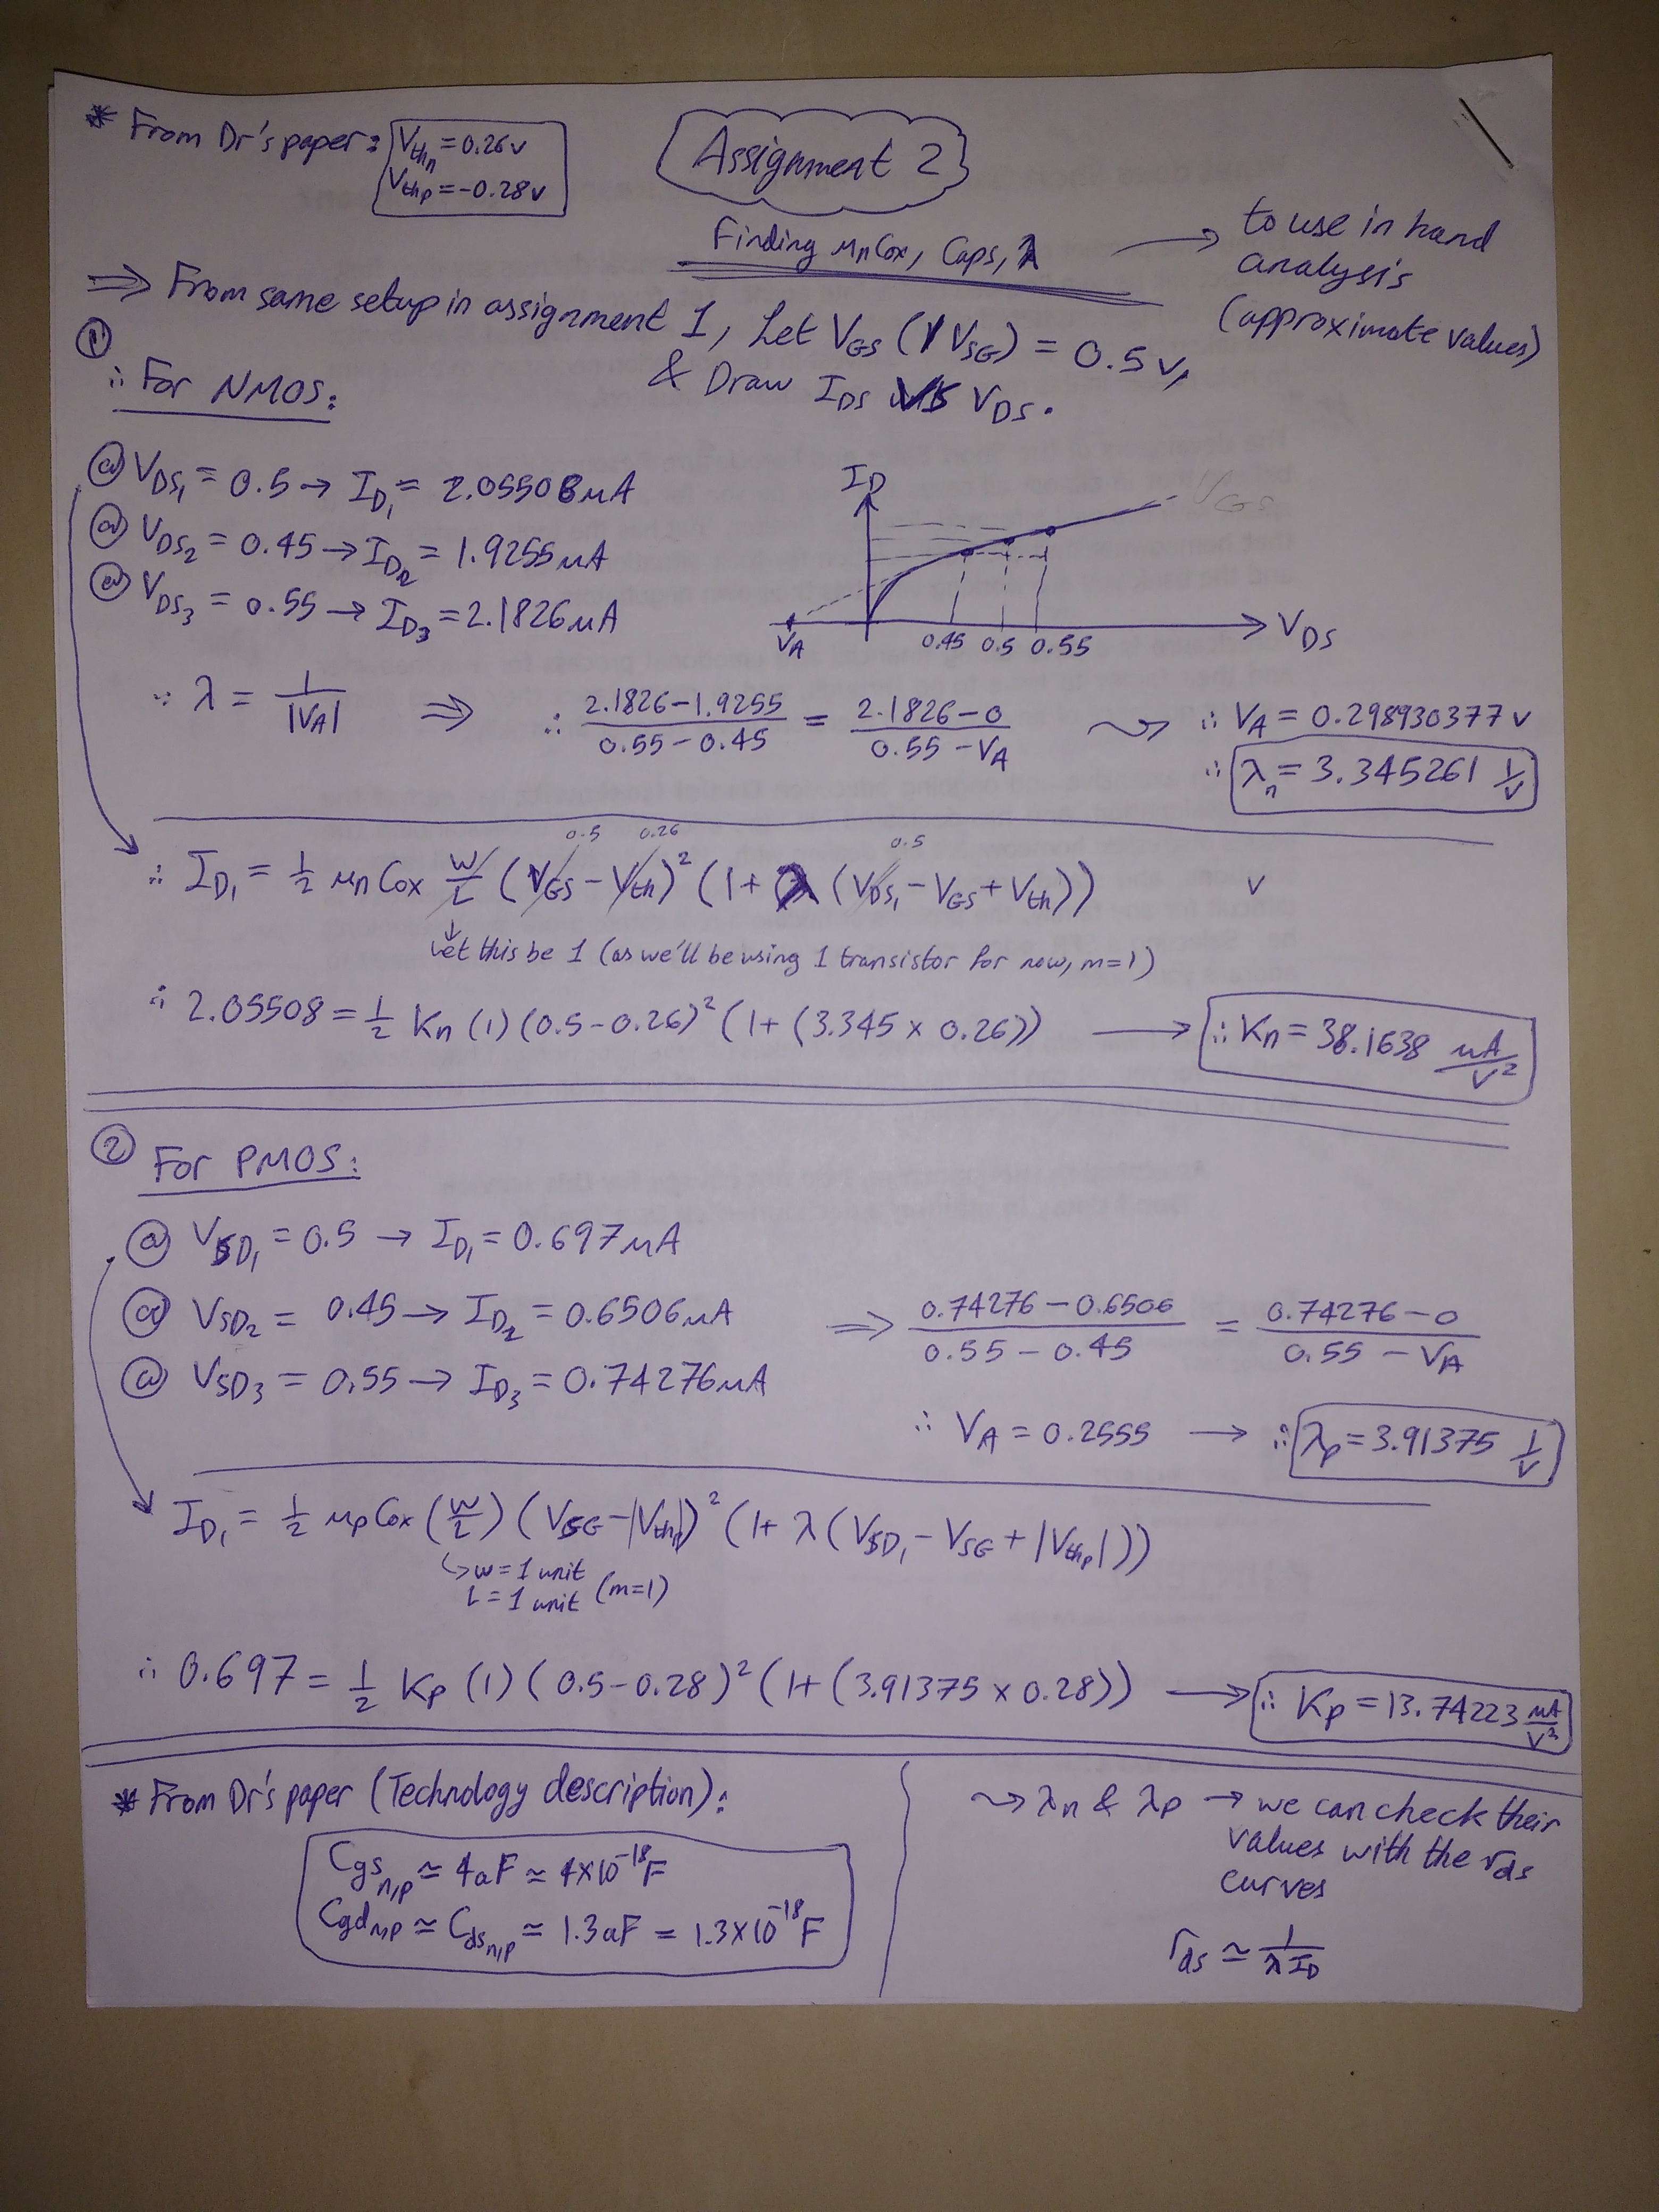 * From Dr's paper: Vthn = 0.26v
Vthp = -0.28v
Assignment 2
Finding μnCox, Caps, λ → to use in hand
analysis
(approximate values)
⇒ From same setup in assignment 1, Let VGS (/VSG) = 0.5v,
& Draw IDS vs VDS.
①
∴ For NMOS:
@ VDS1 = 0.5 → ID1 = 2.05508μA
@ VDS2 = 0.45 → ID2 = 1.9255μA
@ VDS3 = 0.55 → ID3 = 2.1826μA
ID
VGS
VA 0.45 0.5 0.55 VDS
∵ λ = 1/|VA| ⇒ ∴ (2.1826-1.9255)/(0.55-0.45) = (2.1826-0)/(0.55-VA) ⇝ ∴ VA = 0.298930377v
∴ λn = 3.345261 1/v
0.5 0.26 0.5
∴ ID1 = 1/2 μnCox W/L (VGS - Vth)² (1 + λ (VDS1 - VGS + Vth)) v
↓
Let this be 1 (as we'll be using 1 transistor for now, m=1)
∴ 2.05508 = 1/2 Kn (1) (0.5-0.26)² (1+(3.345 x 0.26)) → ∴ Kn = 38.1638 μA/V²
② For PMOS:
@ VSD1 = 0.5 → ID1 = 0.697μA
@ VSD2 = 0.45 → ID2 = 0.6506μA ⇒ (0.74276-0.6506)/(0.55-0.45) = (0.74276-0)/(0.55-VA)
@ VSD3 = 0.55 → ID3 = 0.74276μA
∴ VA = 0.2555 → ∴ λp = 3.91375 1/v
ID1 = 1/2 μpCox (W/L) (VSG - |Vthp|)² (1+ λ (VSD1 - VSG + |Vthp|))
↳ w = 1 unit
L = 1 unit (m=1)
∴ 0.697 = 1/2 Kp (1) (0.5-0.28)² (1+ (3.91375 x 0.28)) → ∴ Kp = 13.74223 μA/V²
* From Dr's paper (Technology description):
Cgsn,p ≃ 4aF ≃ 4x10⁻¹⁸F
Cgdn,p ≃ Cdsn,p ≃ 1.3aF = 1.3x10⁻¹⁸F
⇝ λn & λp → we can check their
values with the rds
curves
rds ≃ 1/λID